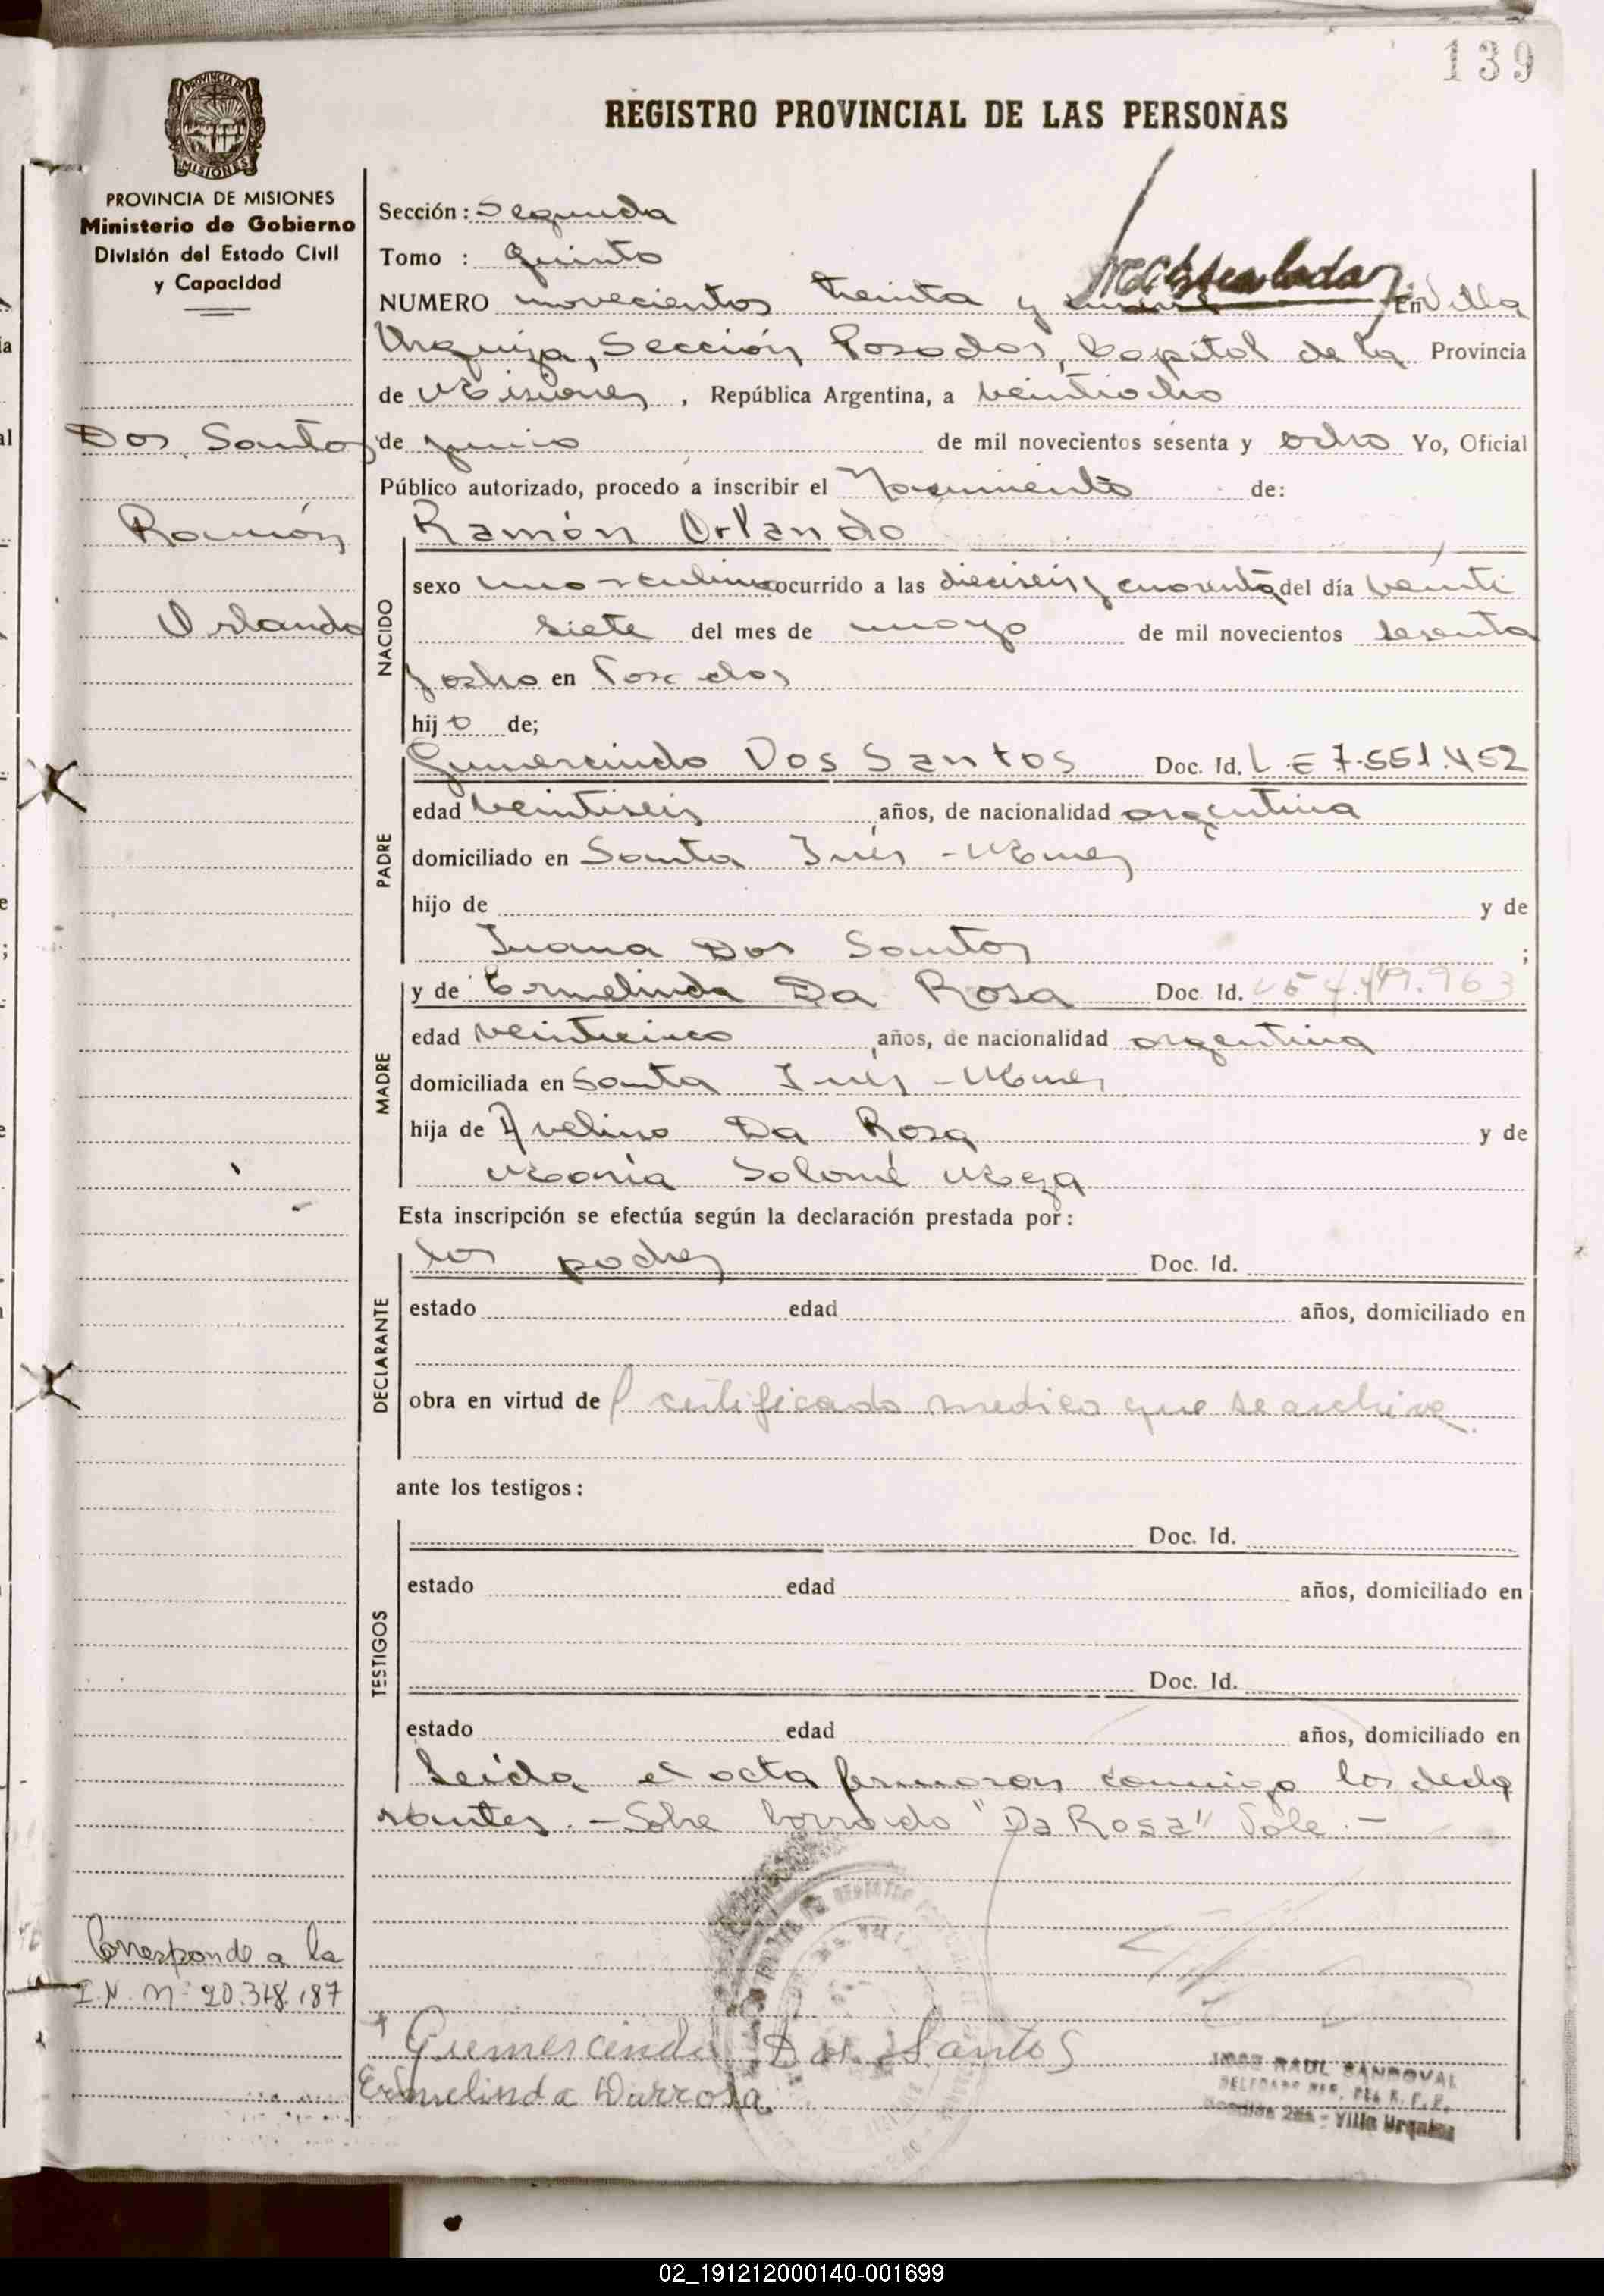 139
REGISTRO PROVINCIAL DE LAS PERSONAS
PROVINCIA DE MISIONES
Ministerio de Gobierno
División del Estado Civil
y Capacidad
Dos Santos
Ramón
Orlando
Corresponde a la
Sección: Segunda
Tomo : Quinto
NUMERO novecientos treinta y En Villa
Urquiza, Sección Posadas, Capital de la Provincia
de Misiones, República Argentina, a veintiocho
de junio de mil novecientos sesenta y ocho Yo, Oficial
Público autorizado, procedo a inscribir el Nacimiento de:
Ramón Orlando
NACIDO
sexo masculino ocurrido a las dieciseis y cuarenta del día veinti
siete del mes de mayo de mil novecientos sesenta
y ocho en Posadas
hijo de;
PADRE
Gumercindo Dos Santos Doc. Id. L E 7.551.452
edad veintiseis años, de nacionalidad argentina
domiciliado en Santa Inés - Mnes
hijo de y de
Juana Dos Santos ;
MADRE
y de Ermelinda Da Rosa Doc. Id.
edad veinticinco años, de nacionalidad argentina
domiciliada en Santa Inés - Mnes
hija de Avelino Da Rosa y de
María Salomé Meza
Esta inscripción se efectúa según la declaración prestada por:
DECLARANTE
los padres Doc. Id.
estado edad años, domiciliado en
obra en virtud de certificado medico que se archiva
ante los testigos:
TESTIGOS
Doc. Id.
estado edad años, domiciliado en
Doc. Id.
estado edad años, domiciliado en
Leída el acta firmaron conmigo los decla
rantes. - Sobre borrado "Da Rosa" Vale. -
Gumercindo Dos Santos
Ermelinda Darrosa
JOSE RAUL SANDOVAL
Sección 2da - Villa Urquiza
02_191212000140-001699